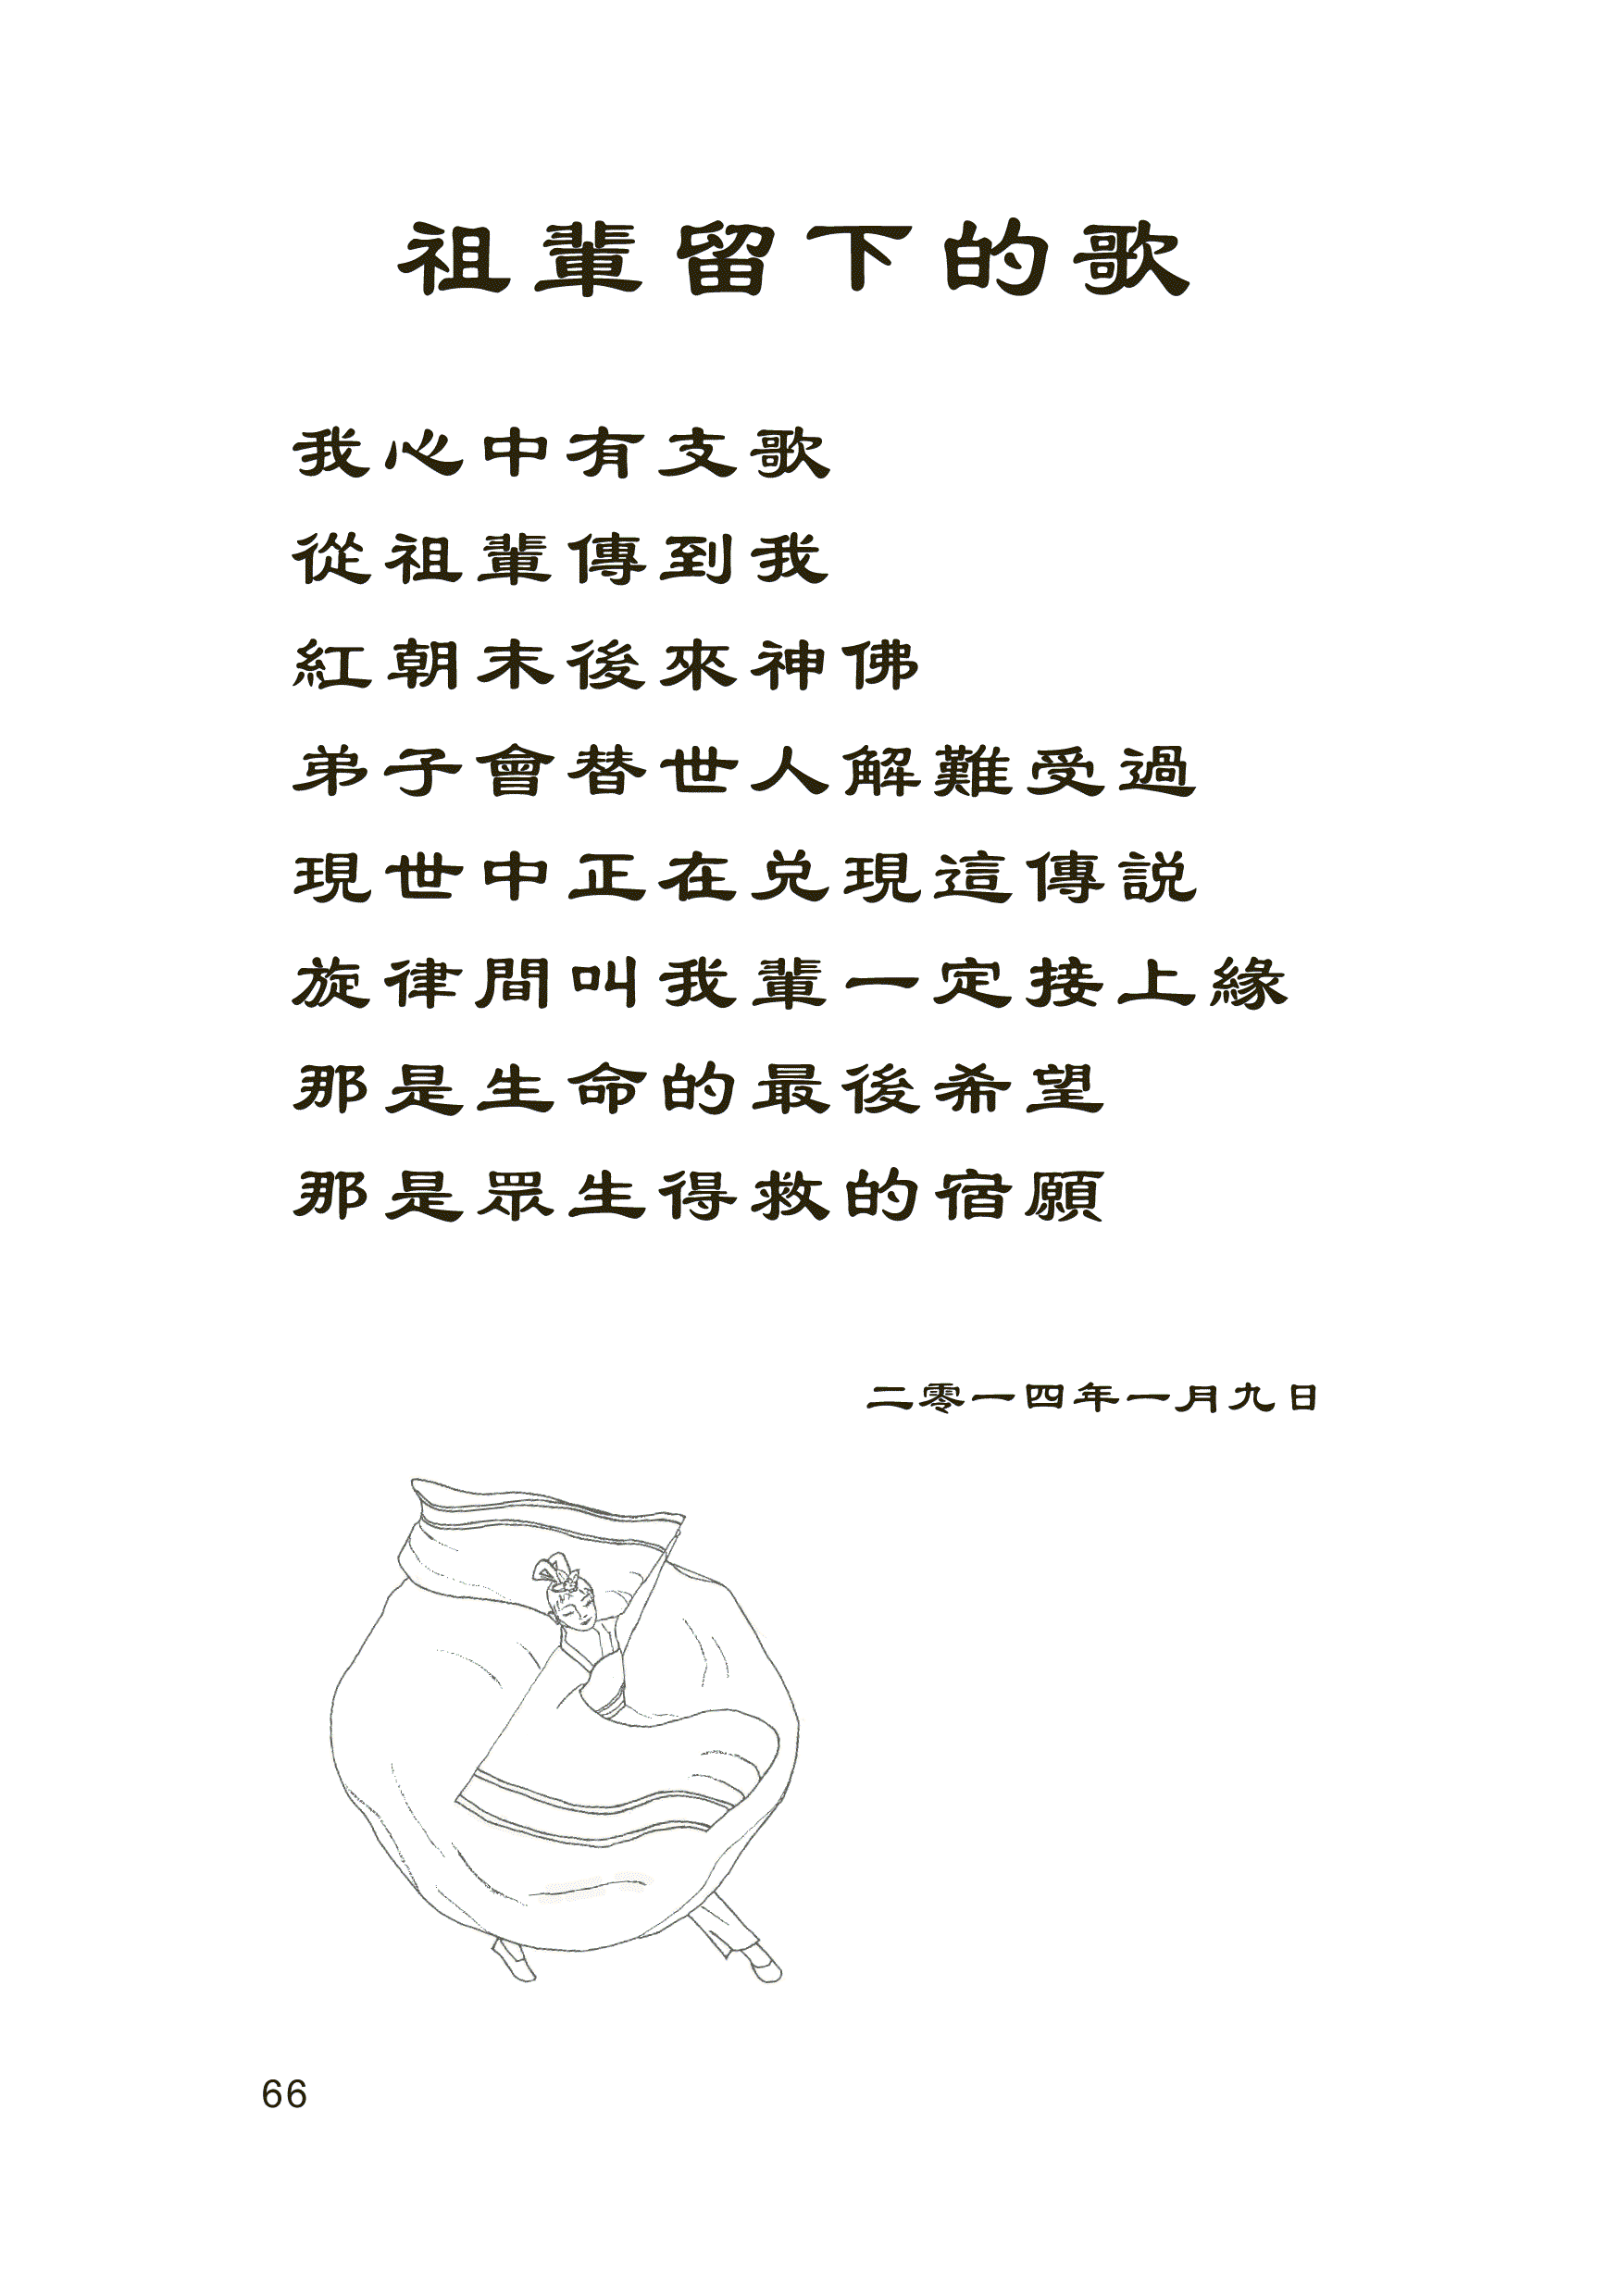 祖輩留下的歌
我心中有支歌
從祖輩傳到我
紅朝末後來神佛
弟子會替世人解難受過
現世中正在兌現這傳説
旋律間叫我輩一定接上緣
那是生命的最後希望
那是眾生得救的宿願
二零一四年一月九日
66